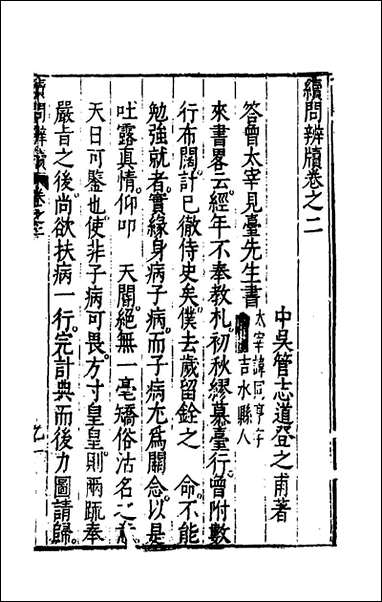 續問辨牘卷之二
中吳管志道登之甫著
答曾太宰見臺先生書
太宰諱同亨子
吉水縣人
來書畧云。經年不奉教札。初秋繆慕臺行。曾附數
行布闊。計已徹侍史矣。僕去歲留銓之 命。不能
勉強就者。實緣身病子病。而子病尤為關念。以是
吐露真情。仰叩 天閽。絕無一毫矯俗沽名之意
天日可鑒也。使非子病可畏。方寸皇皇。則兩疏奉
嚴旨之後。尚欲扶病一行。完計典而後力圖請歸。
續問辨牘 卷之二